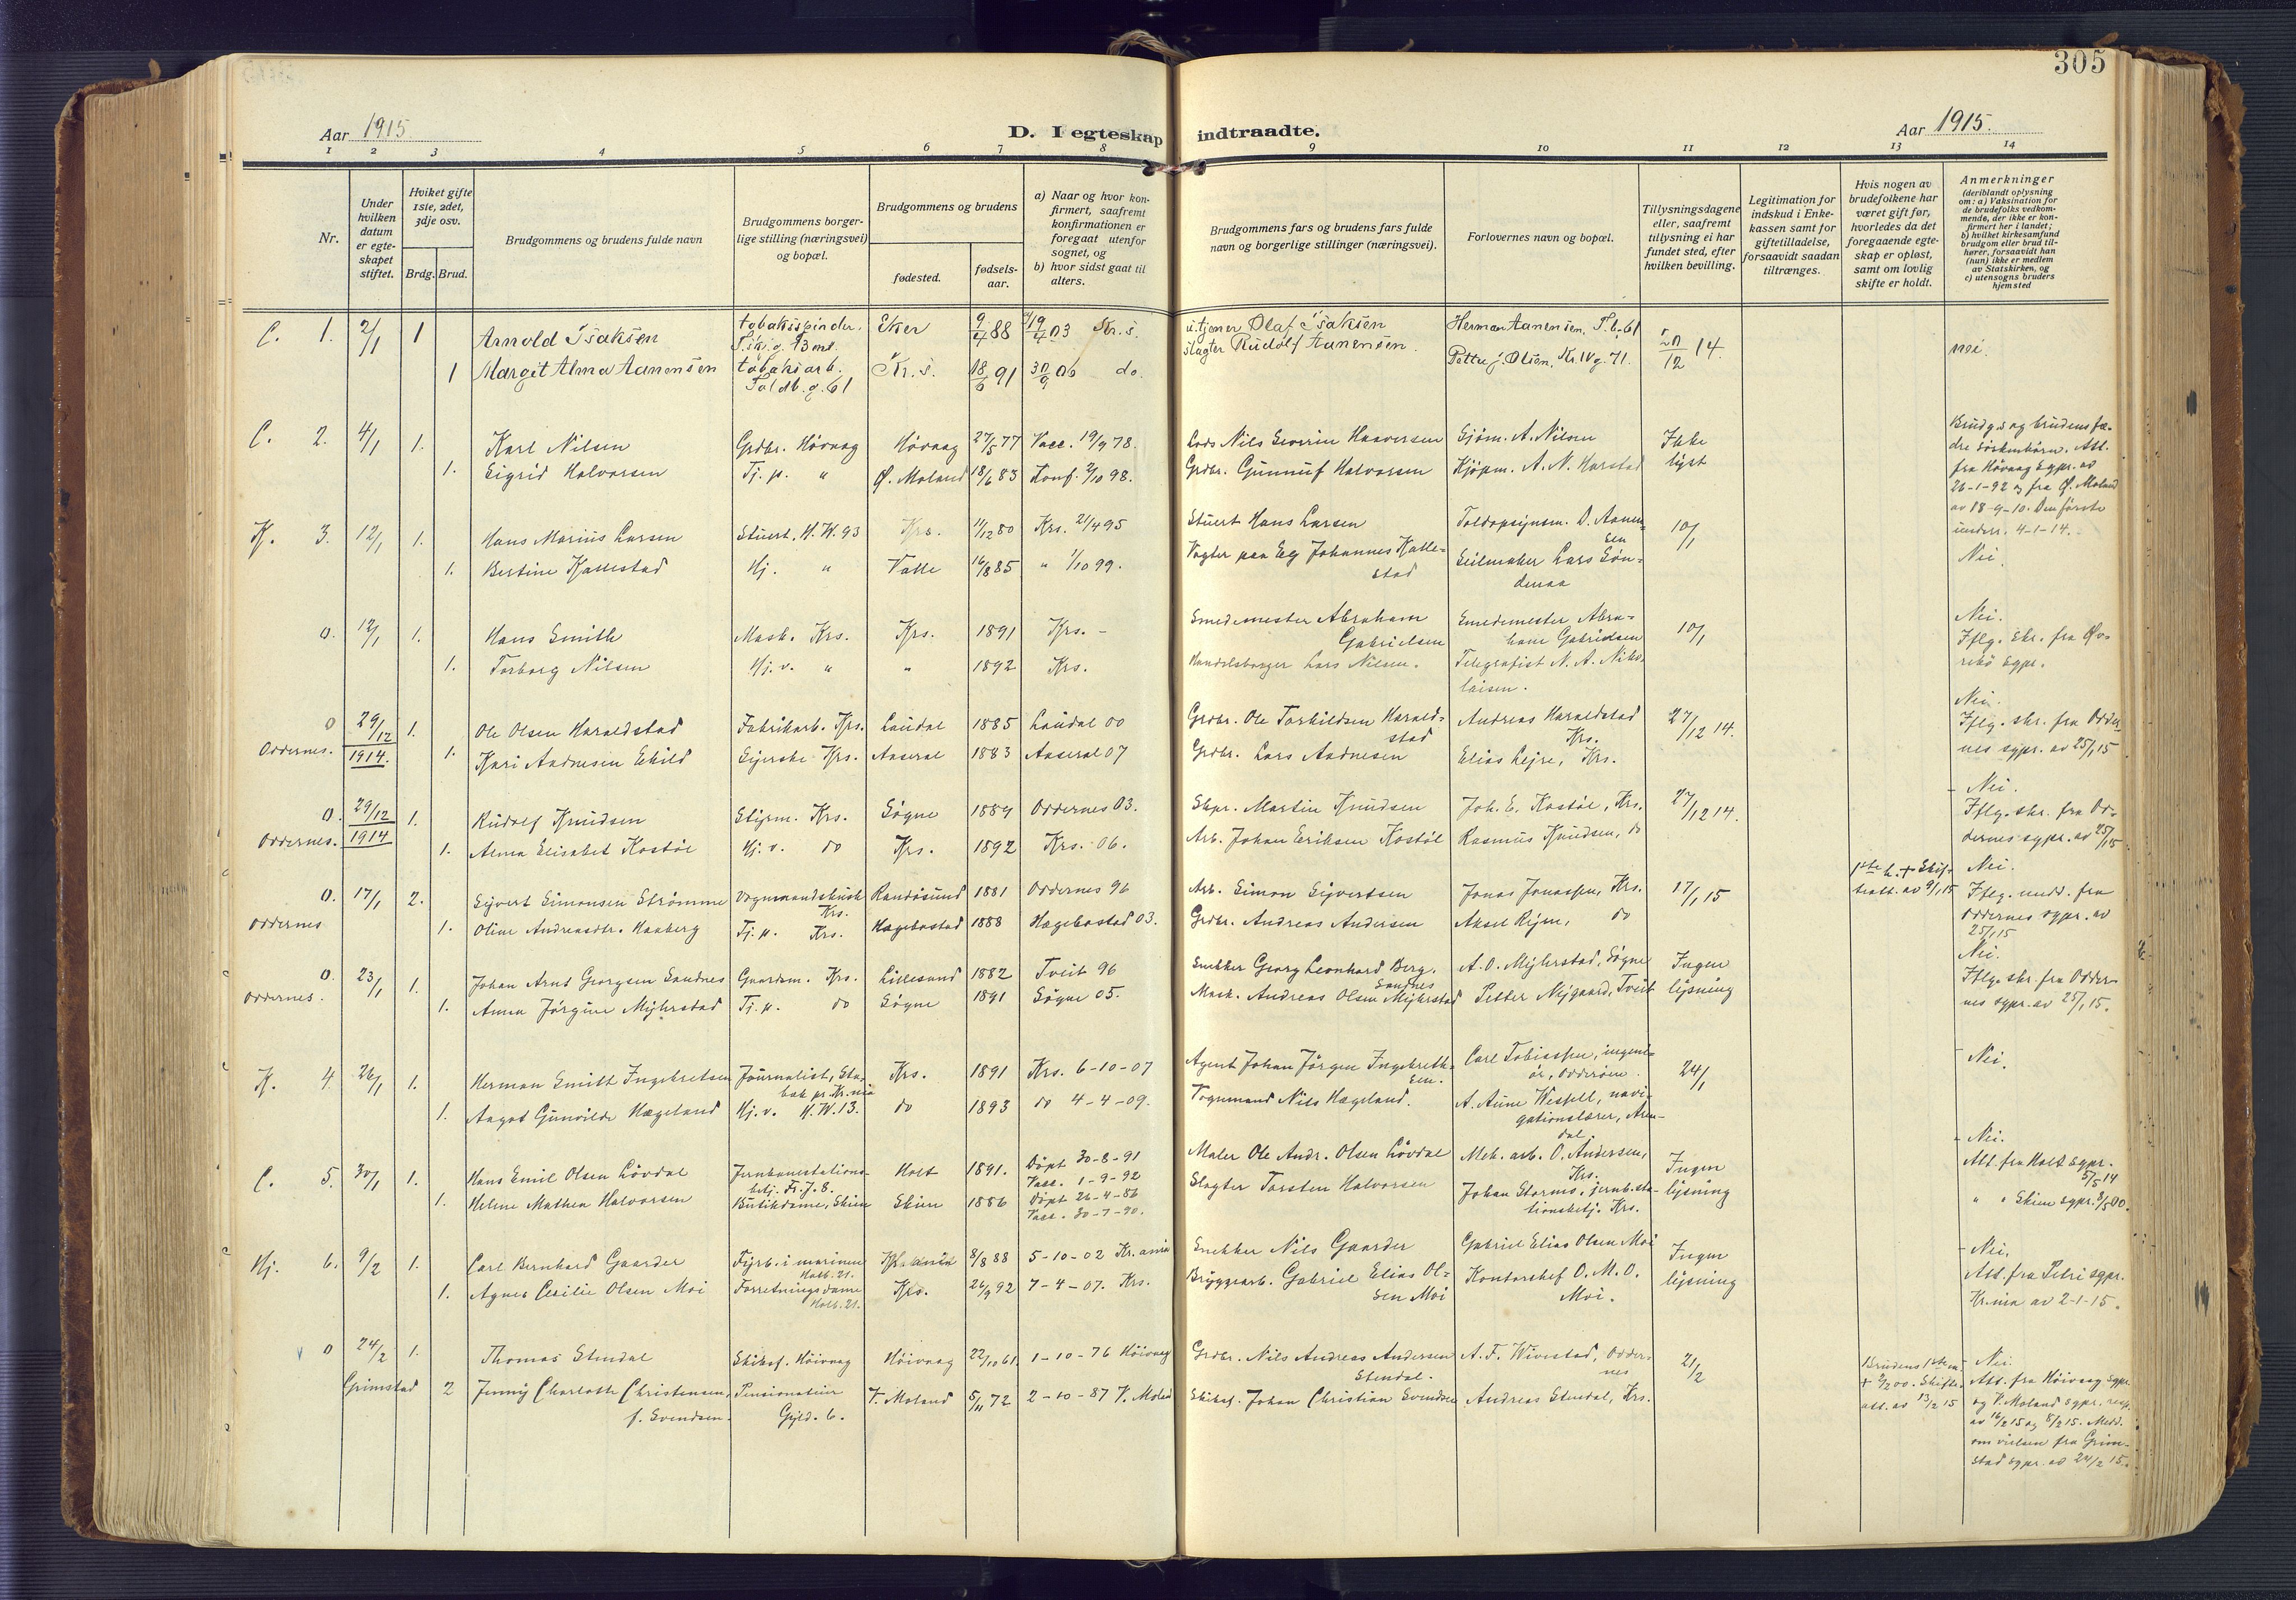 305
Aar 1915.
D. I egteskap indtraadte.
Aar 1915.
1 2 3 4 5 6 7 8 9 10 11 12 13 14
Nr.
Under hvilken datum er egteskapet stiftet.
Hviket gifte 1ste, 2det, 3dje osv.
Brdg. Brud.
Brudgommens og brudens fulde navn
Brudgommens borgerlige stilling (næringsvei) og bopæl.
Brudgommens og brudens
fødested.
fødselsaar.
a) Naar og hvor konfirmert, saafremt konfirmationen er foregaat utenfor sognet, og
b) hvor sidst gaat til alters.
Brudgommens fars og brudens fars fulde navn og borgerlige stillinger (næringsvei).
Forlovernes navn og bopæl.
Tillysningsdagene eller, saafremt tillysning ei har fundet sted, efter hvilken bevilling.
Legitimation for indskud i Enkekassen samt for giftetilladelse, forsaavidt saadan tiltrænges.
Hvis nogen av brudefolkene har været gift før, hvorledes da det foregaaende egteskap er opløst, samt om lovlig skifte er holdt.
Anmerkninger
(deriblandt oplysning om: a) Vaksination for de brudefolks vedkommende, der ikke er konfirmert her i landet; b) hvilket kirkesamfund brudgom eller brud tilhører, forsaavidt han (hun) ikke er medlem av Statskirken, og c) utensogns bruders hjemsted
C. 1. 2/1 1 Arnold Isaksen tobaksspinder. Eker 9/4 88 19/4 03 Kr.s. Olaf Isaksen Herman Aanensen, T.b. 61 20/12 14. nei.
1 Margit Alma Aanensen tobaksarb. Toldb.g. 61 Kr.s. 18/6 91 30/9 06 do. slagter Rudolf Aanensen. Petter j. Olsen, Kr.IVg. 71.
C. 2. 4/1 1. Karl Nilsen Grdbr. Høvaag Høvaag 27/5 77 Vacc. 19/9 78. Lods Nils Severin Haaversen Sjøm. A. Nilsen Ikke lyst
1. Sigrid Halvorsen Tj. p. " Ø. Moland 18/6 83 Konf. 2/10 98. Grdbr. Gunnuf Halvorsen Kjøpm. A. N. Harstad
Brudg.s og brudens fædre søskenbørn. Att. fra Høvaag sgpr. av 26-1-92 og fra Ø. Moland av 18-9-10. Den første underr. 4-1-14.
K. 3. 12/1 1. Hans Marius Larsen Stuert, H. W. 93 Krs. 11/12 80 Krs. 21/4 95 Stuert Hans Larsen Toldopsynsm. D. Aanensen 10/1
1. Bertine Kallestad Hj. " Valle 16/8 85 " 1/10 99. Vogter paa Eg Johannes Kallestad Seilmaker Lars Søndenaa Nei.
0. 12/1 1. Hans Smith Mask. Krs. Krs. 1891 Krs. - Smedemester Abraham Gabrielsen Smedemester Abraham Gabrielsen 10/1
1. Torborg Nilsen Hj. v. " " 1892 Krs. Handelsborger Lars Nilsen. Telegrafist N. A. Nikolaisen.
Nei. Iflg. skr. fra Øvrebø sgpr.
0 Oddernes. 29/12 1914. 1. Ole Olsen Haraldstad Fabrikarb. Krs. Laudal 1885 Laudal 00 Grdbr. Ole Torkildsen Haraldstad Andreas Haraldstad Krs. 27/12 14.
1. Kari Andnesen Ekild Syerske Krs. Aaseral 1883 Aaseral 07 Grdbr. Lars Aadnesen Elias Lejre, Krs.
Nei. Iflg. skr. fra Oddernes sgpr. av 25/1 15
0. Oddernes. 29/12 1914 1. Rudolf Knudsen Styrm. Krs. Søgne 1889 Oddernes 03. Skpr. Martin Knudsen Joh. E. Kostøl, Krs. 27/12 14.
1. Anna Elisabet Kostøl Hj. v. do Krs. 1892 Krs. 06. Arb. Johan Eriksen Kostøl Rasmus Knudsen, do
Nei. Iflg. skr. fra Oddernes sgpr. av 25/1 15
0. Oddernes 17/1 2. Sivert Simonsen Strømme Vognmandskusk Krs. Randøsund 1881 Oddernes 96 Arb. Simon Sivertsen Jonas Jonassen, Krs. 17/1 15
1. Oline Andreasdtr. Haaberg Tj. p. Krs. Hægebostad 1888 Hægebostad 03. Grdbr. Andreas Andersen Aksel Rejen, do
Nei. Iflg. medd. fra Oddernes sgpr. av 25/1 15
0. Oddernes. 23/1 1. Johan Arnt Georgsen Sandnes Gaardsm. Krs. Lillesand 1882 Tveit 96 Snekker Georg Leonhard Berg. Sandnes A. O. Myhrstad, Søgne Ingen lysning
1. Anna Jørgine Myhrstad Tj. p. do Søgne 1891 Søgne 05. Mask. Andreas Olsen Myhrstad Petter Nygaard, Tveit
Nei. Iflg. skr. fra Oddernes sgpr. av 25/1 15.
K. 4. 26/1 1. Herman Smitt Ingebretsen Journalist, Stabæk pr. Kr.nia Krs. 1891 Krs. 6-10-07 Agent Johan Jørgen Ingebrethsen. Carl Tobiassen, ingeniør, Odderøen. 24/1 Nei.
1. Aagot Gunvilde Hægeland Hj. v. H. W. 13. do 1893 do 4-4-09. Vognmand Nils Hægeland. A. Aune Wessel, navigationslærer, Arendal.
C. 5. 30/1 1. Hans Emil Olsen Løvdal Jernbanestationsbetj. Holt 1891. Døpt 30-8-91 Vacc. 1-9-92 Maler Ole Andr. Olsen Løvdal Mek. arb. O. Andersen, Krs. Ingen lysning
1. Helene Mathea Halvorsen Butikdame, Skien Skien 1886 Døpt 26-4-86 Vacc. 30-7-90. Slagter Torsten Halvorsen Johan Storms, jernb.stationsbetj. Krs.
Nei. Att. fra Holt sgpr. 5/5 14 " " Skien sgpr. 3/5 00.
Hj. 6. 9/2 1. Carl Bernhard Gaarder Fyrb. i marinen Holb. 21. 8/8 88 5-10-02 Kr.ania Snekker Nils Gaarder Gabriel Elias Olsen Moi Ingen lysning
1. Agnes Cecilie Olsen Moi Forretningsdame Holb. 21. Krs. 26/9 92 7-4-07. Krs. Bryggearb. Gabriel Elias Olsen Moi Kontorchef O. M. O. Moi.
Nei. Att. fra Petri sgpr. Kr.nia av 2-1-15.
0 24/2 1. Thomas Stendal Skibsf. Høivaag Høivaag 22/10 61 1-10-76 Høivaag Grdbr. Nils Andreas Andersen Stendal. A. F. Wivestad, Oddernes 21/2
Grimstad 2 Jenny Charlotte Christensen, f. Svendsen. Pensionateier Gyld. 6. V. Moland 5/11 72 2-10-87 V. Moland Skibsf. Johan Christian Svendsen Andreas Stendal, Krs.
Brudens 1ste m. + 2/2 00. Skifteatt. av 13/2 15
Nei. Att. fra Høivaag sgpr. og V. Moland sgpr., resp. av 16/2 15 og 8/2 15. Medd. om vielsen fra Grimstad sgpr. av 24/2 15.